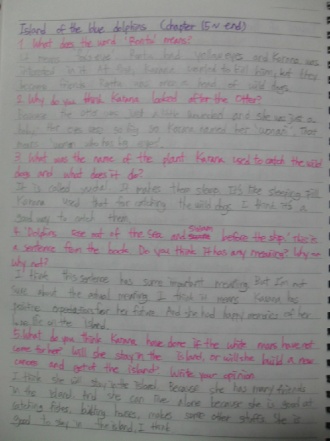 Island of the blue dolphins (chapter 15 ~ end)
1. What does the word 'Rontu' means?
It means fox eyes. Rontu had yellow eyes and Karana was
interested in it. At first, Karana wanted to kill him, but they
became friends. Rontu was once a leader of wild dogs.
2. Why do you think Karana looked after the otter?
Because the otter was just a little wounded and she was just a
baby. Her eyes were so big so Karana named her
means
3. What was the name of the plant Karana used to catch the wild
dogs and what does it do?
It is called It makes them sleep. It's like sleeping pill.
Karana used that for catching the wild dogs. I think it's a
good way to catch them.
4. 'Dolphins rose out of the sea and swam before the ship.' This is
a sentence from the book. Do you think it has any meaning? Why or
why not?
I think this sentence has some important meaning. But I'm not
sure about the actual meaning. I think it means Karana has
positive expectation for her future. And she had happy memories of her
life in the island.
5. What do you think Karana have done if the white mans have not
came for her? Will she stay in the island, or will she build a new
canoe and get off the island? Write your opinion.
I think she will stay in the island. Because she has many friends
in the island. And she can live alone because she is good at
catching fishes, building houses, makes some other stuffs. She is
good to stay in the island, I think.